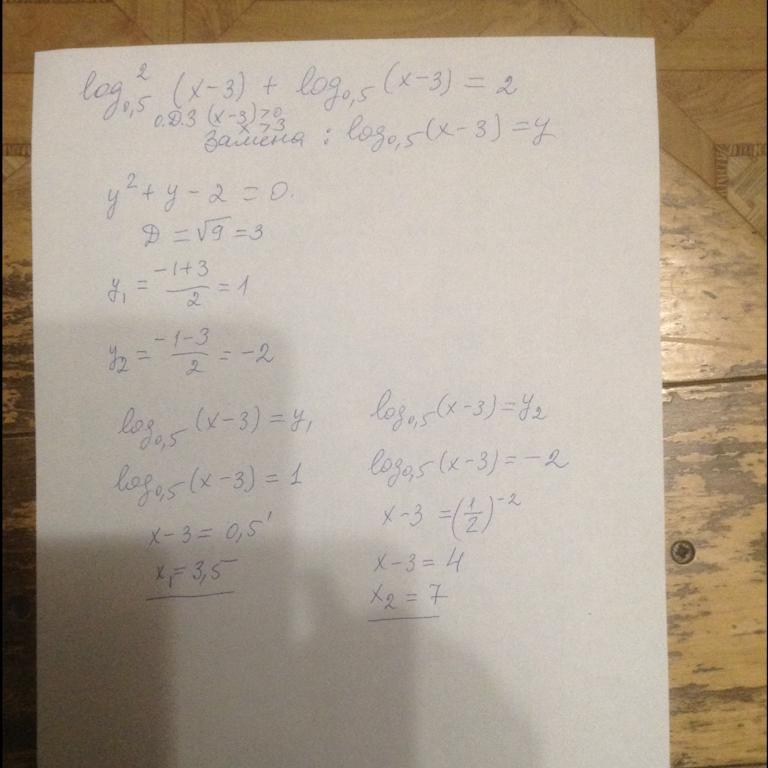 log²₀,₅ (x-3) + log₀,₅ (x-3) = 2
О.Д.З (x-3)>0
x>3
Замена : log₀,₅(x-3) = y
y² + y - 2 = 0.
D = √9 = 3
y₁ = (-1+3)/2 = 1
y₂ = (-1-3)/2 = -2
log₀,₅ (x-3) = y₁
log₀,₅ (x-3) = 1
x-3 = 0,5¹
x₁ = 3,5
log₀,₅ (x-3) = y₂
log₀,₅ (x-3) = -2
x-3 = (1/2)⁻²
x-3 = 4
x₂ = 7